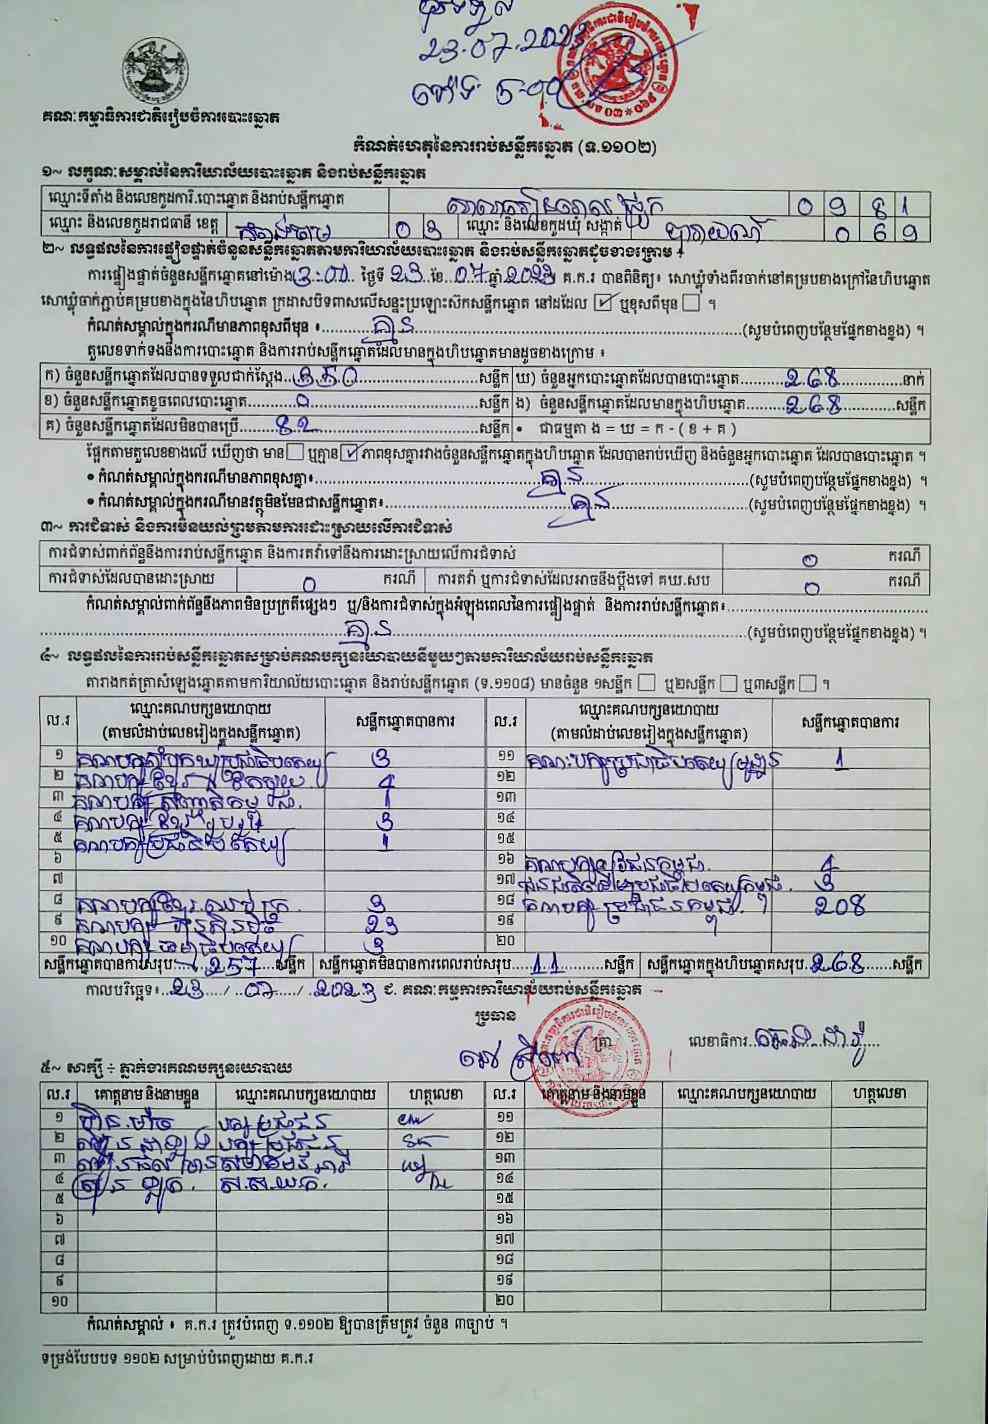 23.07.2023
គណៈកម្មាធិការជាតិរៀបចំការបោះឆ្នោត
កំណត់ហេតុនៃការរាប់សន្លឹកឆ្នោត (ទ.១១០២)
១~ លក្ខណៈសម្គាល់នៃការិយាល័យបោះឆ្នោត និងរាប់សន្លឹកឆ្នោត
ឈ្មោះទីតាំង និងលេខកូដការិ.បោះឆ្នោត និងរាប់សន្លឹកឆ្នោត 0 9 8 1
ឈ្មោះ និងលេខកូដរាជធានី ខេត្ត កំពង់ចាម 0 3 ឈ្មោះ និងលេខកូដឃុំ សង្កាត់ 0 6 9
២~ លទ្ធផលនៃការផ្ទៀងផ្ទាត់ចំនួនសន្លឹកឆ្នោតតាមការិយាល័យបោះឆ្នោត និងរាប់សន្លឹកឆ្នោតដូចខាងក្រោម ៖
ការផ្ទៀងផ្ទាត់ចំនួនសន្លឹកឆ្នោតនៅម៉ោង 3:00 ថ្ងៃទី 23 ខែ 07 ឆ្នាំ 2023 គ.ក.រ បានពិនិត្យ៖ សោឃ្លុំទាំងពីរចាក់នៅគម្របខាងក្រៅនៃហិបឆ្នោត
សោឃ្លុំចាក់ភ្ជាប់គម្របខាងក្នុងនៃហិបឆ្នោត ក្រដាសបិទពាសលើសន្ទះប្រឡោះស៊កសន្លឹកឆ្នោត នៅដដែល ☑ ឬខុសពីមុន ☐ ។
កំណត់សម្គាល់ក្នុងករណីមានភាពខុសពីមុន ៖ គ្មាន (សូមបំពេញបន្ថែមផ្នែកខាងខ្នង) ។
តួលេខទាក់ទងនឹងការបោះឆ្នោត និងការរាប់សន្លឹកឆ្នោតដែលមានក្នុងហិបឆ្នោតមានដូចខាងក្រោម ៖
ក) ចំនួនសន្លឹកឆ្នោតដែលបានទទួលជាក់ស្តែង 350 សន្លឹក ឃ) ចំនួនអ្នកបោះឆ្នោតដែលបានបោះឆ្នោត 268 នាក់
ខ) ចំនួនសន្លឹកឆ្នោតខូចពេលបោះឆ្នោត 0 សន្លឹក ង) ចំនួនសន្លឹកឆ្នោតដែលមានក្នុងហិបឆ្នោត 268 សន្លឹក
គ) ចំនួនសន្លឹកឆ្នោតដែលមិនបានប្រើ 82 សន្លឹក • ជាធម្មតា ង = ឃ = ក - ( ខ + គ )
ផ្អែកតាមតួលេខខាងលើ ឃើញថា មាន ☐ ឬគ្មាន ☑ ភាពខុសគ្នារវាងចំនួនសន្លឹកឆ្នោតក្នុងហិបឆ្នោត ដែលបានរាប់ឃើញ និងចំនួនអ្នកបោះឆ្នោត ដែលបានបោះឆ្នោត ។
• កំណត់សម្គាល់ក្នុងករណីមានភាពខុសគ្នា៖ គ្មាន (សូមបំពេញបន្ថែមផ្នែកខាងខ្នង) ។
• កំណត់សម្គាល់ក្នុងករណីមានវត្ថុមិនមែនជាសន្លឹកឆ្នោត៖ គ្មាន (សូមបំពេញបន្ថែមផ្នែកខាងខ្នង) ។
៣~ ការជំទាស់ និងការមិនយល់ព្រមតាមការដោះស្រាយលើការជំទាស់
ការជំទាស់ពាក់ព័ន្ធនឹងការរាប់សន្លឹកឆ្នោត និងការតវ៉ាទៅនឹងការដោះស្រាយលើការជំទាស់ 0 ករណី
ការជំទាស់ដែលបានដោះស្រាយ 0 ករណី ការតវ៉ា ឬការជំទាស់ដែលអាចនឹងប្តឹងទៅ គឃ.សប 0 ករណី
កំណត់សម្គាល់ពាក់ព័ន្ធនឹងភាពមិនប្រក្រតីផ្សេងៗ ឬ/និងការជំទាស់ក្នុងអំឡុងពេលនៃការផ្ទៀងផ្ទាត់ និងការរាប់សន្លឹកឆ្នោត៖
គ្មាន (សូមបំពេញបន្ថែមផ្នែកខាងខ្នង) ។
៤~ លទ្ធផលនៃការរាប់សន្លឹកឆ្នោតសម្រាប់គណបក្សនយោបាយនីមួយៗតាមការិយាល័យរាប់សន្លឹកឆ្នោត
តារាងកត់ត្រាសំឡេងឆ្នោតតាមការិយាល័យបោះឆ្នោត និងរាប់សន្លឹកឆ្នោត (ទ.១១០៨) មានចំនួន ១សន្លឹក ☐ ឬ២សន្លឹក ☐ ឬ៣សន្លឹក ☐ ។
ល.រ ឈ្មោះគណបក្សនយោបាយ (តាមលំដាប់លេខរៀងក្នុងសន្លឹកឆ្នោត) សន្លឹកឆ្នោតបានការ ល.រ ឈ្មោះគណបក្សនយោបាយ (តាមលំដាប់លេខរៀងក្នុងសន្លឹកឆ្នោត) សន្លឹកឆ្នោតបានការ
១ 3 ១១ 1
២ គណបក្សខ្មែរ 4 ១២
៣ គណបក្ស 1 ១៣
៤ គណបក្សខ្មែរ 3 ១៤
៥ គណបក្ស 1 ១៥
៦ ១៦ គណបក្ស 4
៧ ១៧ 3
៨ គណបក្សខ្មែរ 3 ១៨ គណបក្សប្រជាជនកម្ពុជា 208
៩ គណបក្ស ហ្វ៊ុនស៊ិនប៉ិច 23 ១៩
១០ គណបក្ស 3 ២០
សន្លឹកឆ្នោតបានការសរុប 257 សន្លឹក សន្លឹកឆ្នោតមិនបានការពេលរាប់សរុប 11 សន្លឹក សន្លឹកឆ្នោតក្នុងហិបឆ្នោតសរុប 268 សន្លឹក
កាលបរិច្ឆេទ៖ 23 / 07 / 2023 ជ. គណៈកម្មការការិយាល័យរាប់សន្លឹកឆ្នោត
ប្រធាន
ត្រា លេខាធិការ
៥~ សាក្សី ៖ ភ្នាក់ងារគណបក្សនយោបាយ
ល.រ គោត្តនាម និងនាមខ្លួន ឈ្មោះគណបក្សនយោបាយ ហត្ថលេខា ល.រ គោត្តនាម និងនាមខ្លួន ឈ្មោះគណបក្សនយោបាយ ហត្ថលេខា
១ បក្សប្រជាជន ១១
២ បក្សប្រជាជន ១២
៣ ១៣
៤ ស.ស.យ.ក. ១៤
៥ ១៥
៦ ១៦
៧ ១៧
៨ ១៨
៩ ១៩
១០ ២០
កំណត់សម្គាល់ ៖ គ.ក.រ ត្រូវបំពេញ ទ.១១០២ ឱ្យបានត្រឹមត្រូវ ចំនួន ៣ច្បាប់ ។
ទម្រង់បែបបទ ១១០២ សម្រាប់បំពេញដោយ គ.ក.រ